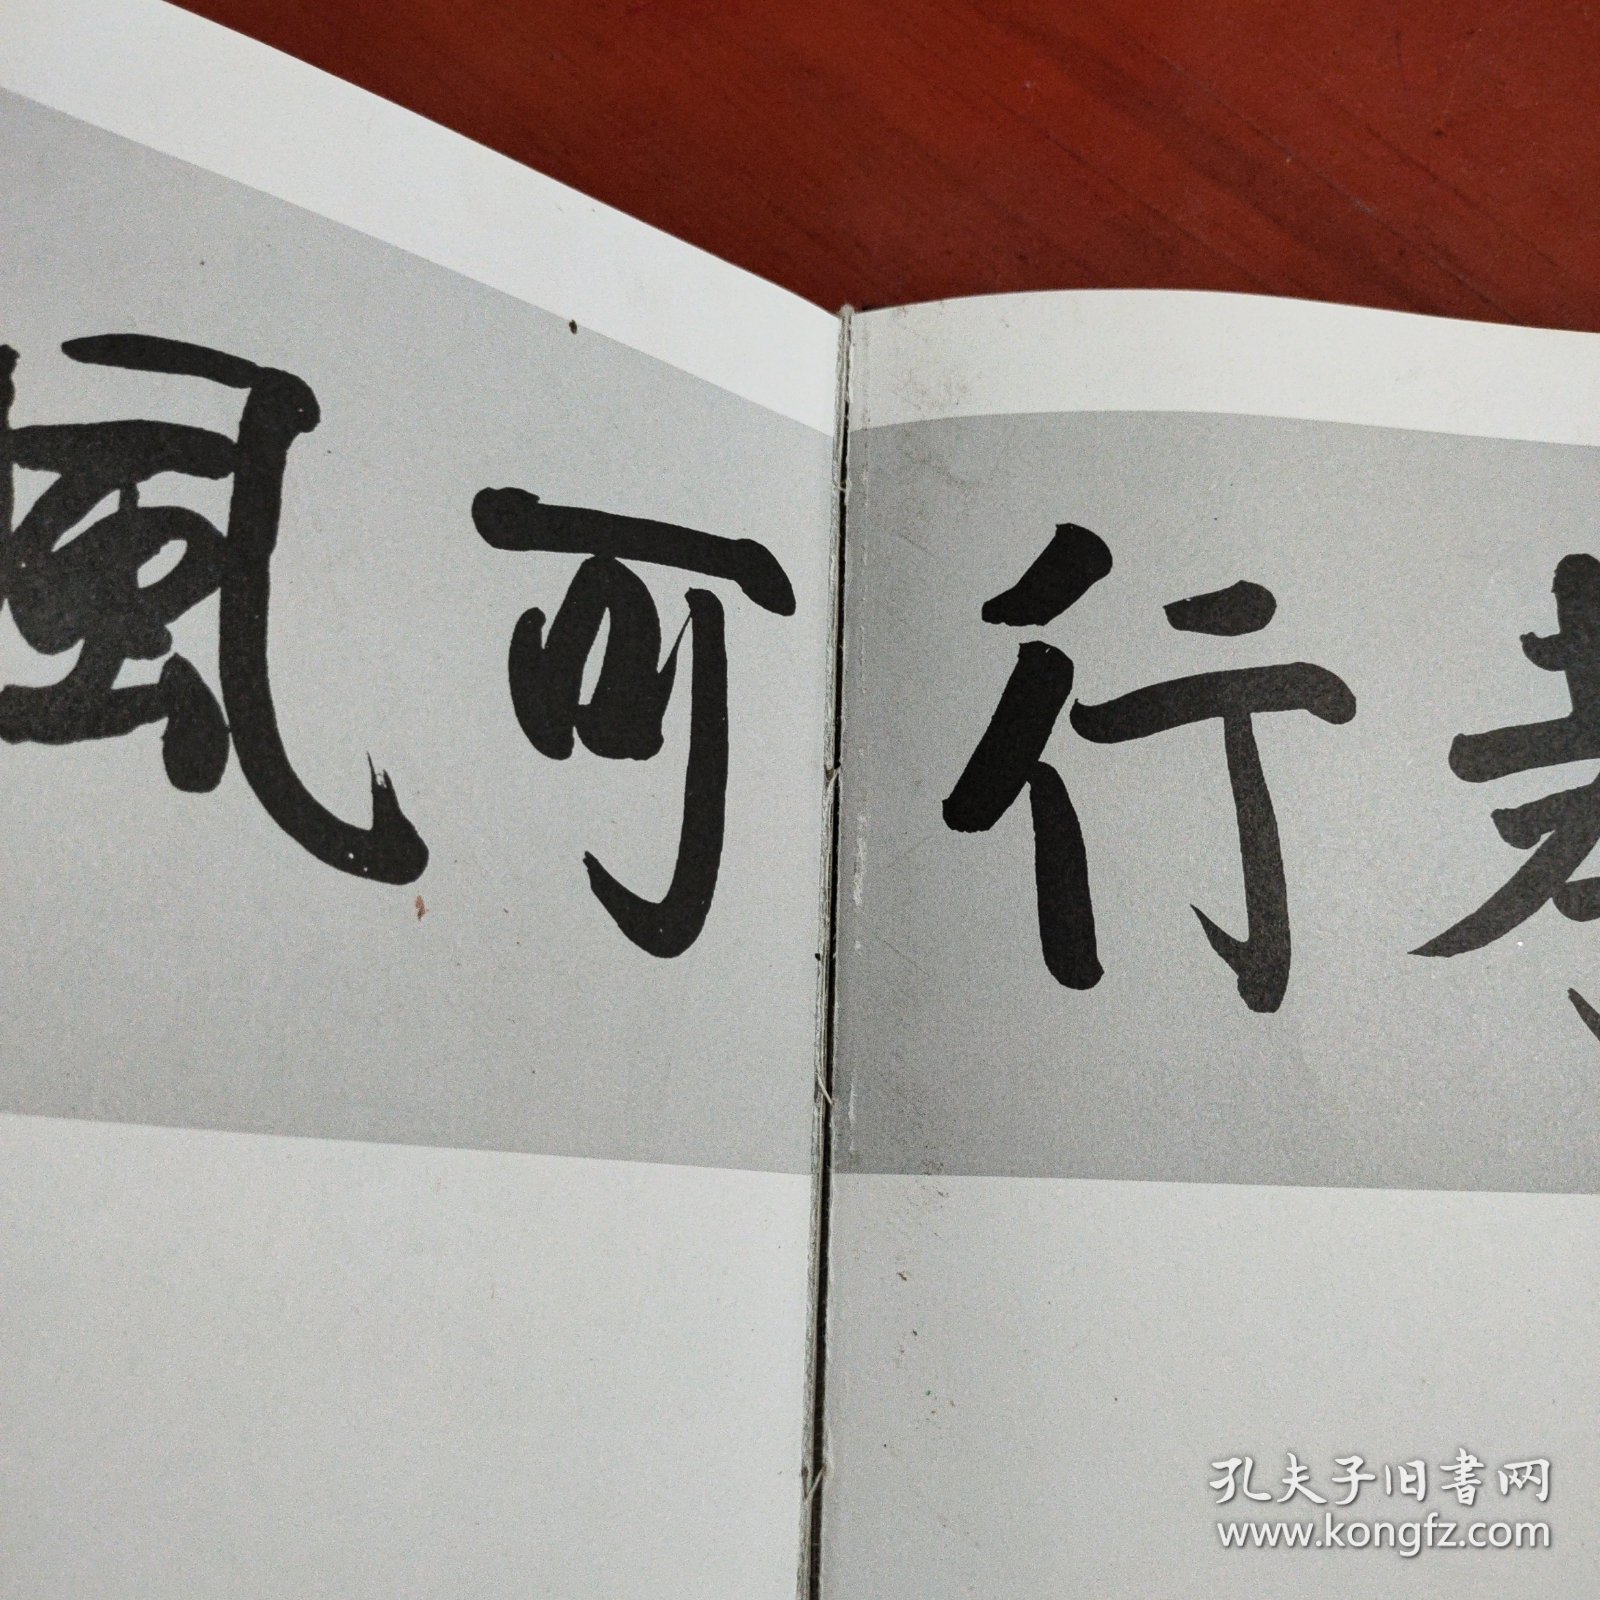 行可風
孔夫子旧書网
www.kongfz.com